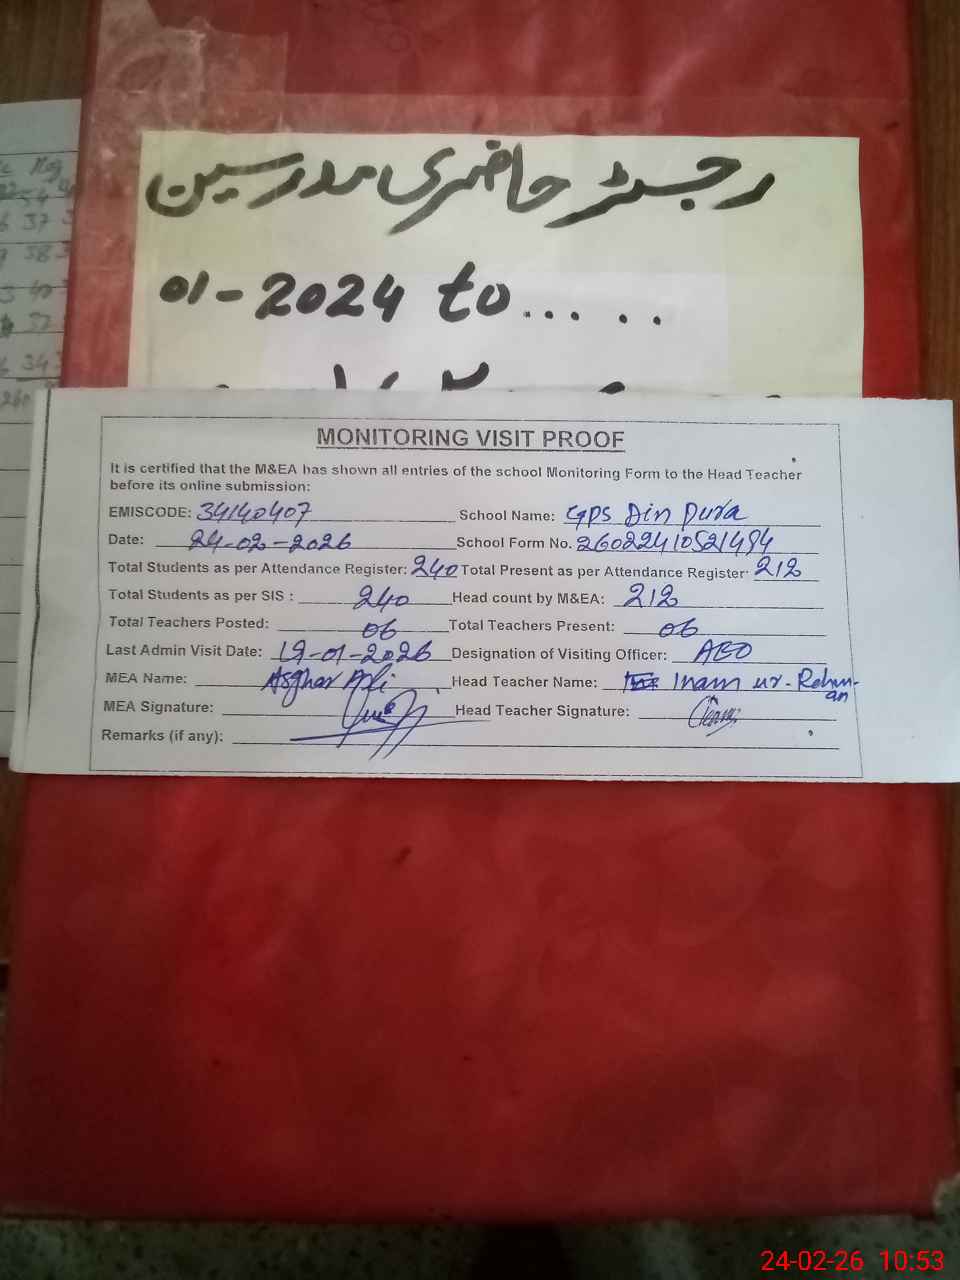 رجسٹر حاضری مدرسین
01-2024 to.....
MONITORING VISIT PROOF
It is certified that the M&EA has shown all entries of the school Monitoring Form to the Head Teacher
before its online submission:
EMISCODE: 34140407 School Name: GPS Din Pura
Date: 24-02-2026 School Form No. 26022410521494
Total Students as per Attendance Register: 240 Total Present as per Attendance Register: 212
Total Students as per SIS : 240 Head count by M&EA: 212
Total Teachers Posted: 06 Total Teachers Present: 06
Last Admin Visit Date: 19-01-2026 Designation of Visiting Officer: AEO
MEA Name: Asghar Ali Head Teacher Name: Inam ur-Rehman
MEA Signature: Head Teacher Signature:
Remarks (if any):
37
38
40
37
34
260
24-02-26 10:53